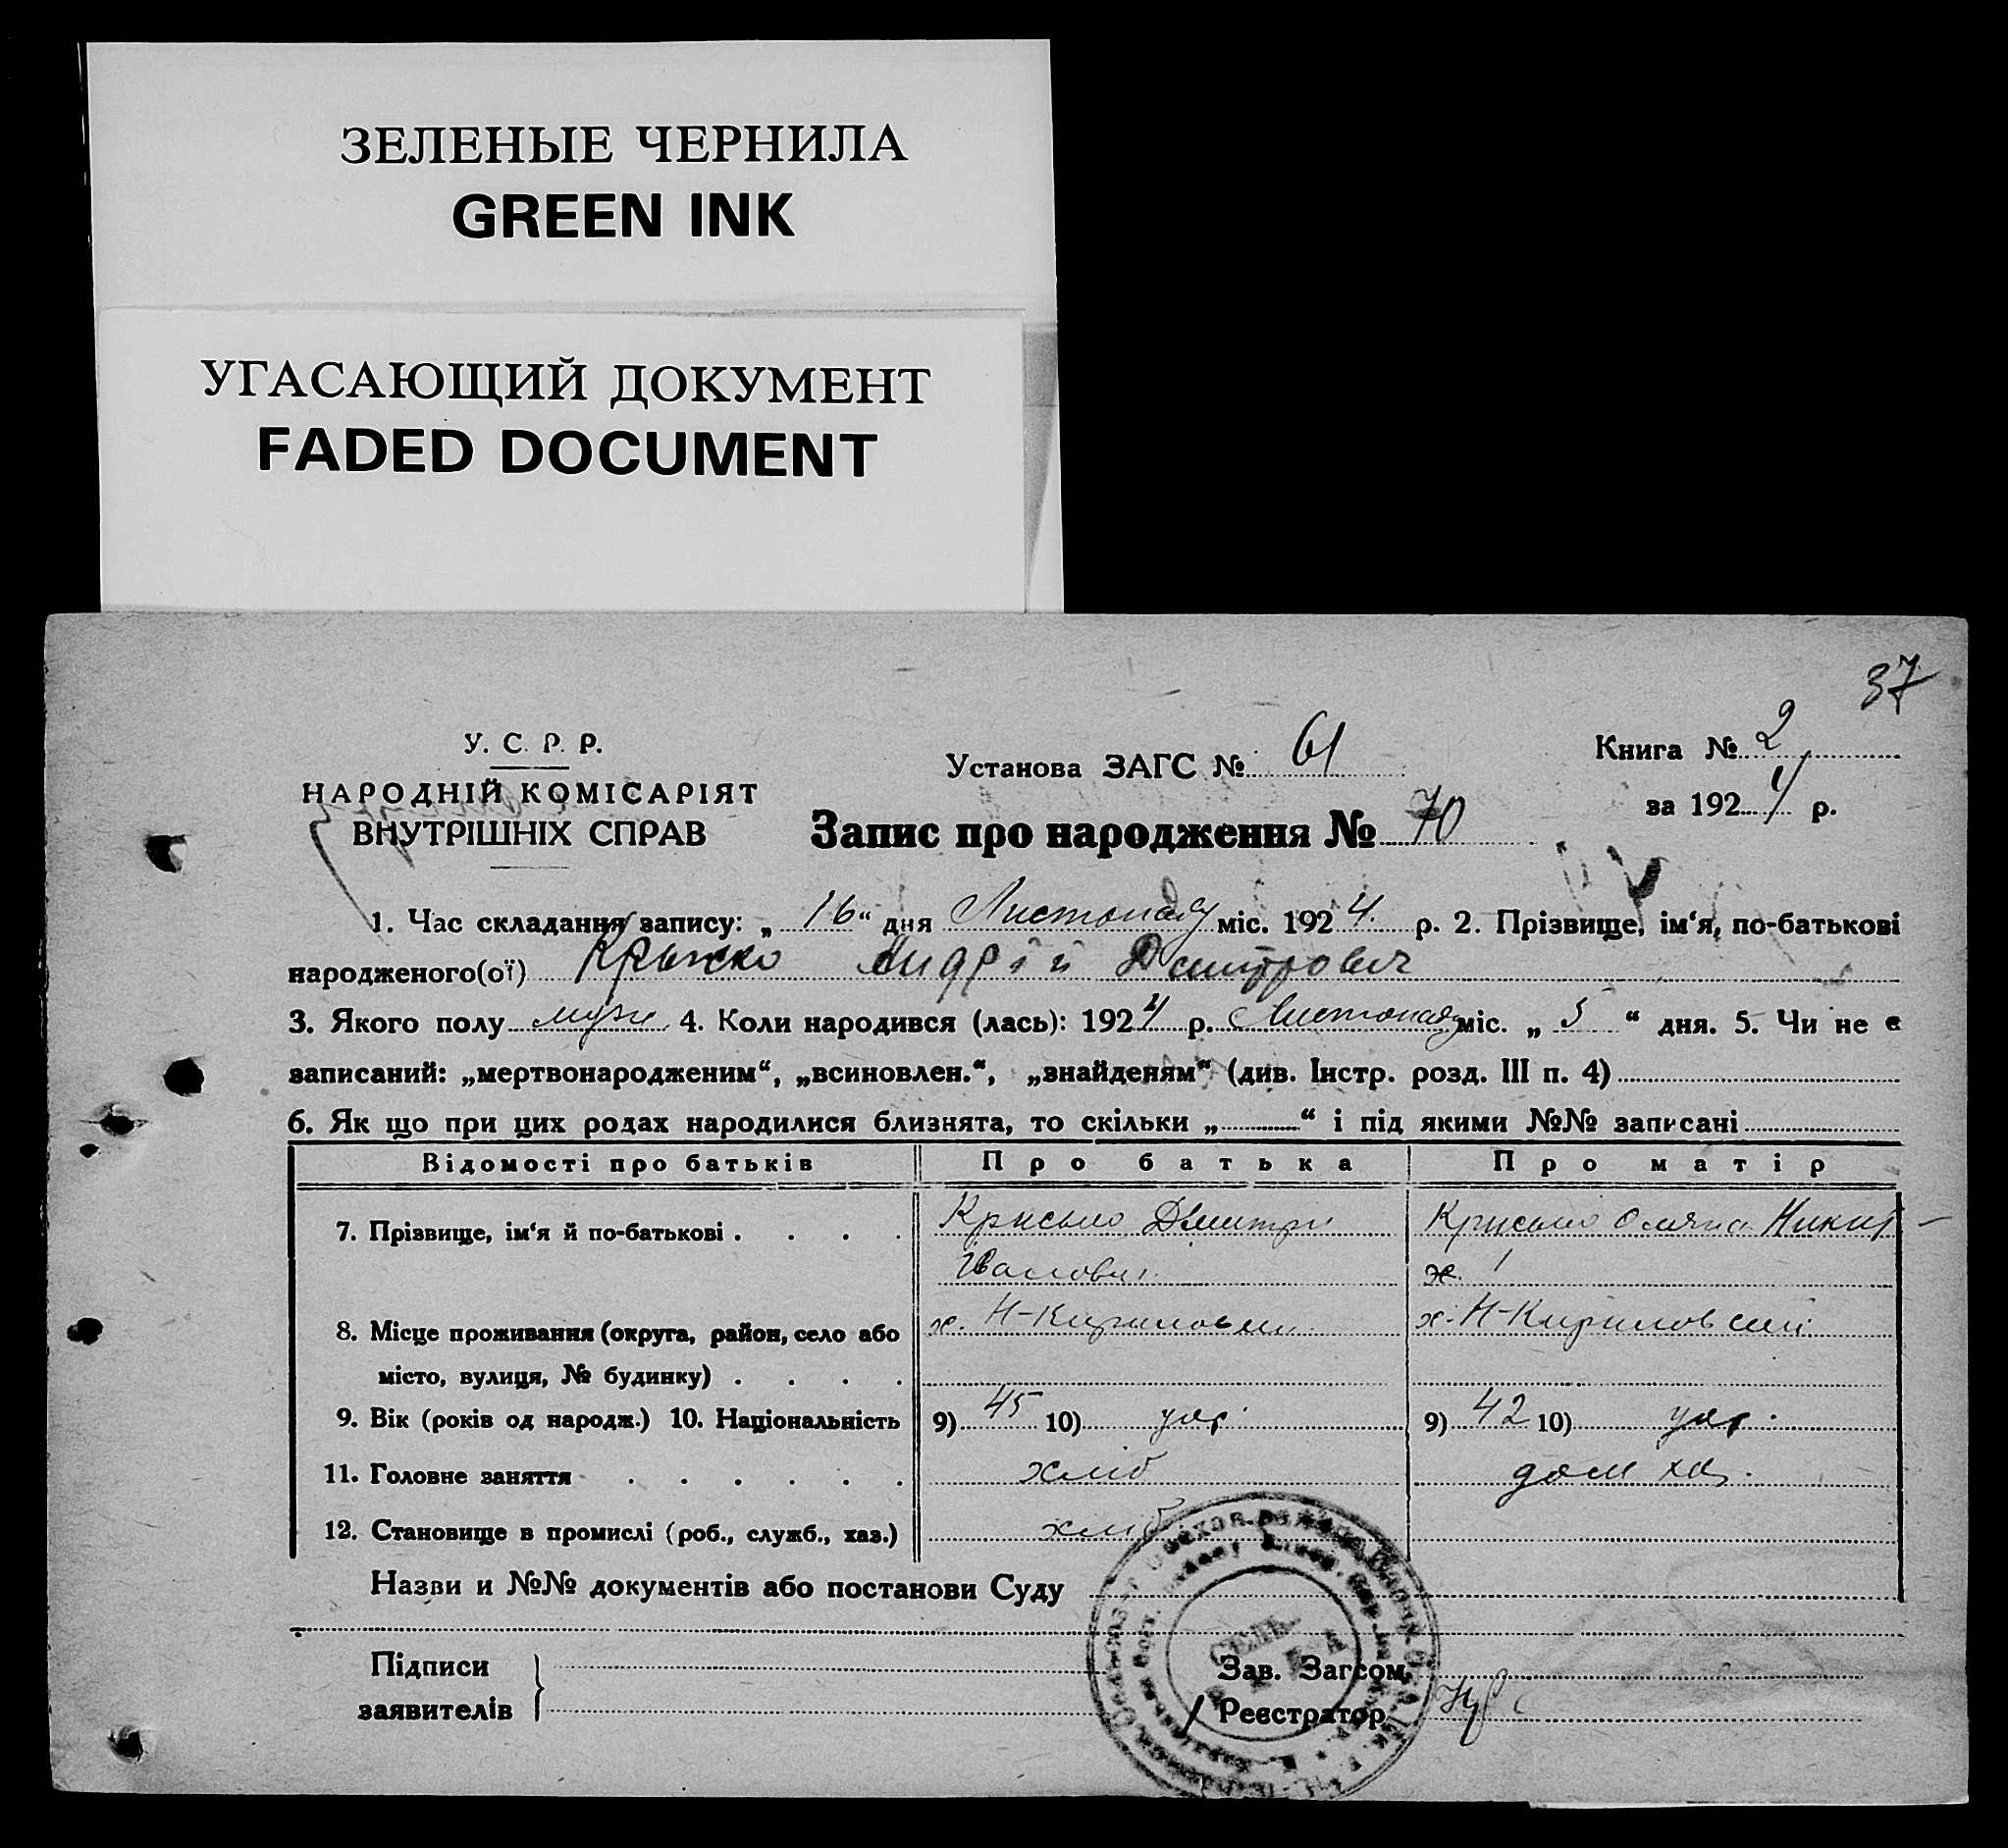 ЗЕЛЕНЫЕ ЧЕРНИЛА
GREEN INK
УГАСАЮЩИЙ ДОКУМЕНТ
FADED DOCUMENT
37
У. С. Р. Р.
НАРОДНІЙ КОМІСАРІЯТ
ВНУТРІШНІХ СПРАВ
Установа ЗАГС № 61
Книга № 2
за 1924 р.
Запис про народження № 70
1. Час складання запису: „ 16 “ дня Листопаду міс. 1924. р. 2. Прізвище, ім‘я, по-батькові
народженого(ої) Андрій Дмитрович
3. Якого полу муж. 4. Коли народився (лась): 1924 р. Листопаду міс. „ 5 “ дня. 5. Чи не є
записаний: „мертвонародженим“, „всиновлен.“, „знайденям“ (див. Інстр. розд. III п. 4)
6. Як що при цих родах народилися близнята, то скільки „ “ і під якими №№ записані
Відомості про батьків Про батька Про матір
7. Прізвище, ім‘я й по-батькові . . . . Дмитри
8. Місце проживання (округа, район, село або х. Н-Кириловс х. Н-Кириловский
місто, вулиця, № будинку) . . . .
9. Вік (років од народж.) 10. Національність 9) 45 10) укр. 9) 42 10) укр.
11. Головне заняття . . . . . . хліб дом хаз.
12. Становище в промислі (роб., служб., хаз.) хліб
Назви и №№ документів або постанови Суду
Підписи
заявителів
Зав. Загсом
Реєстратор